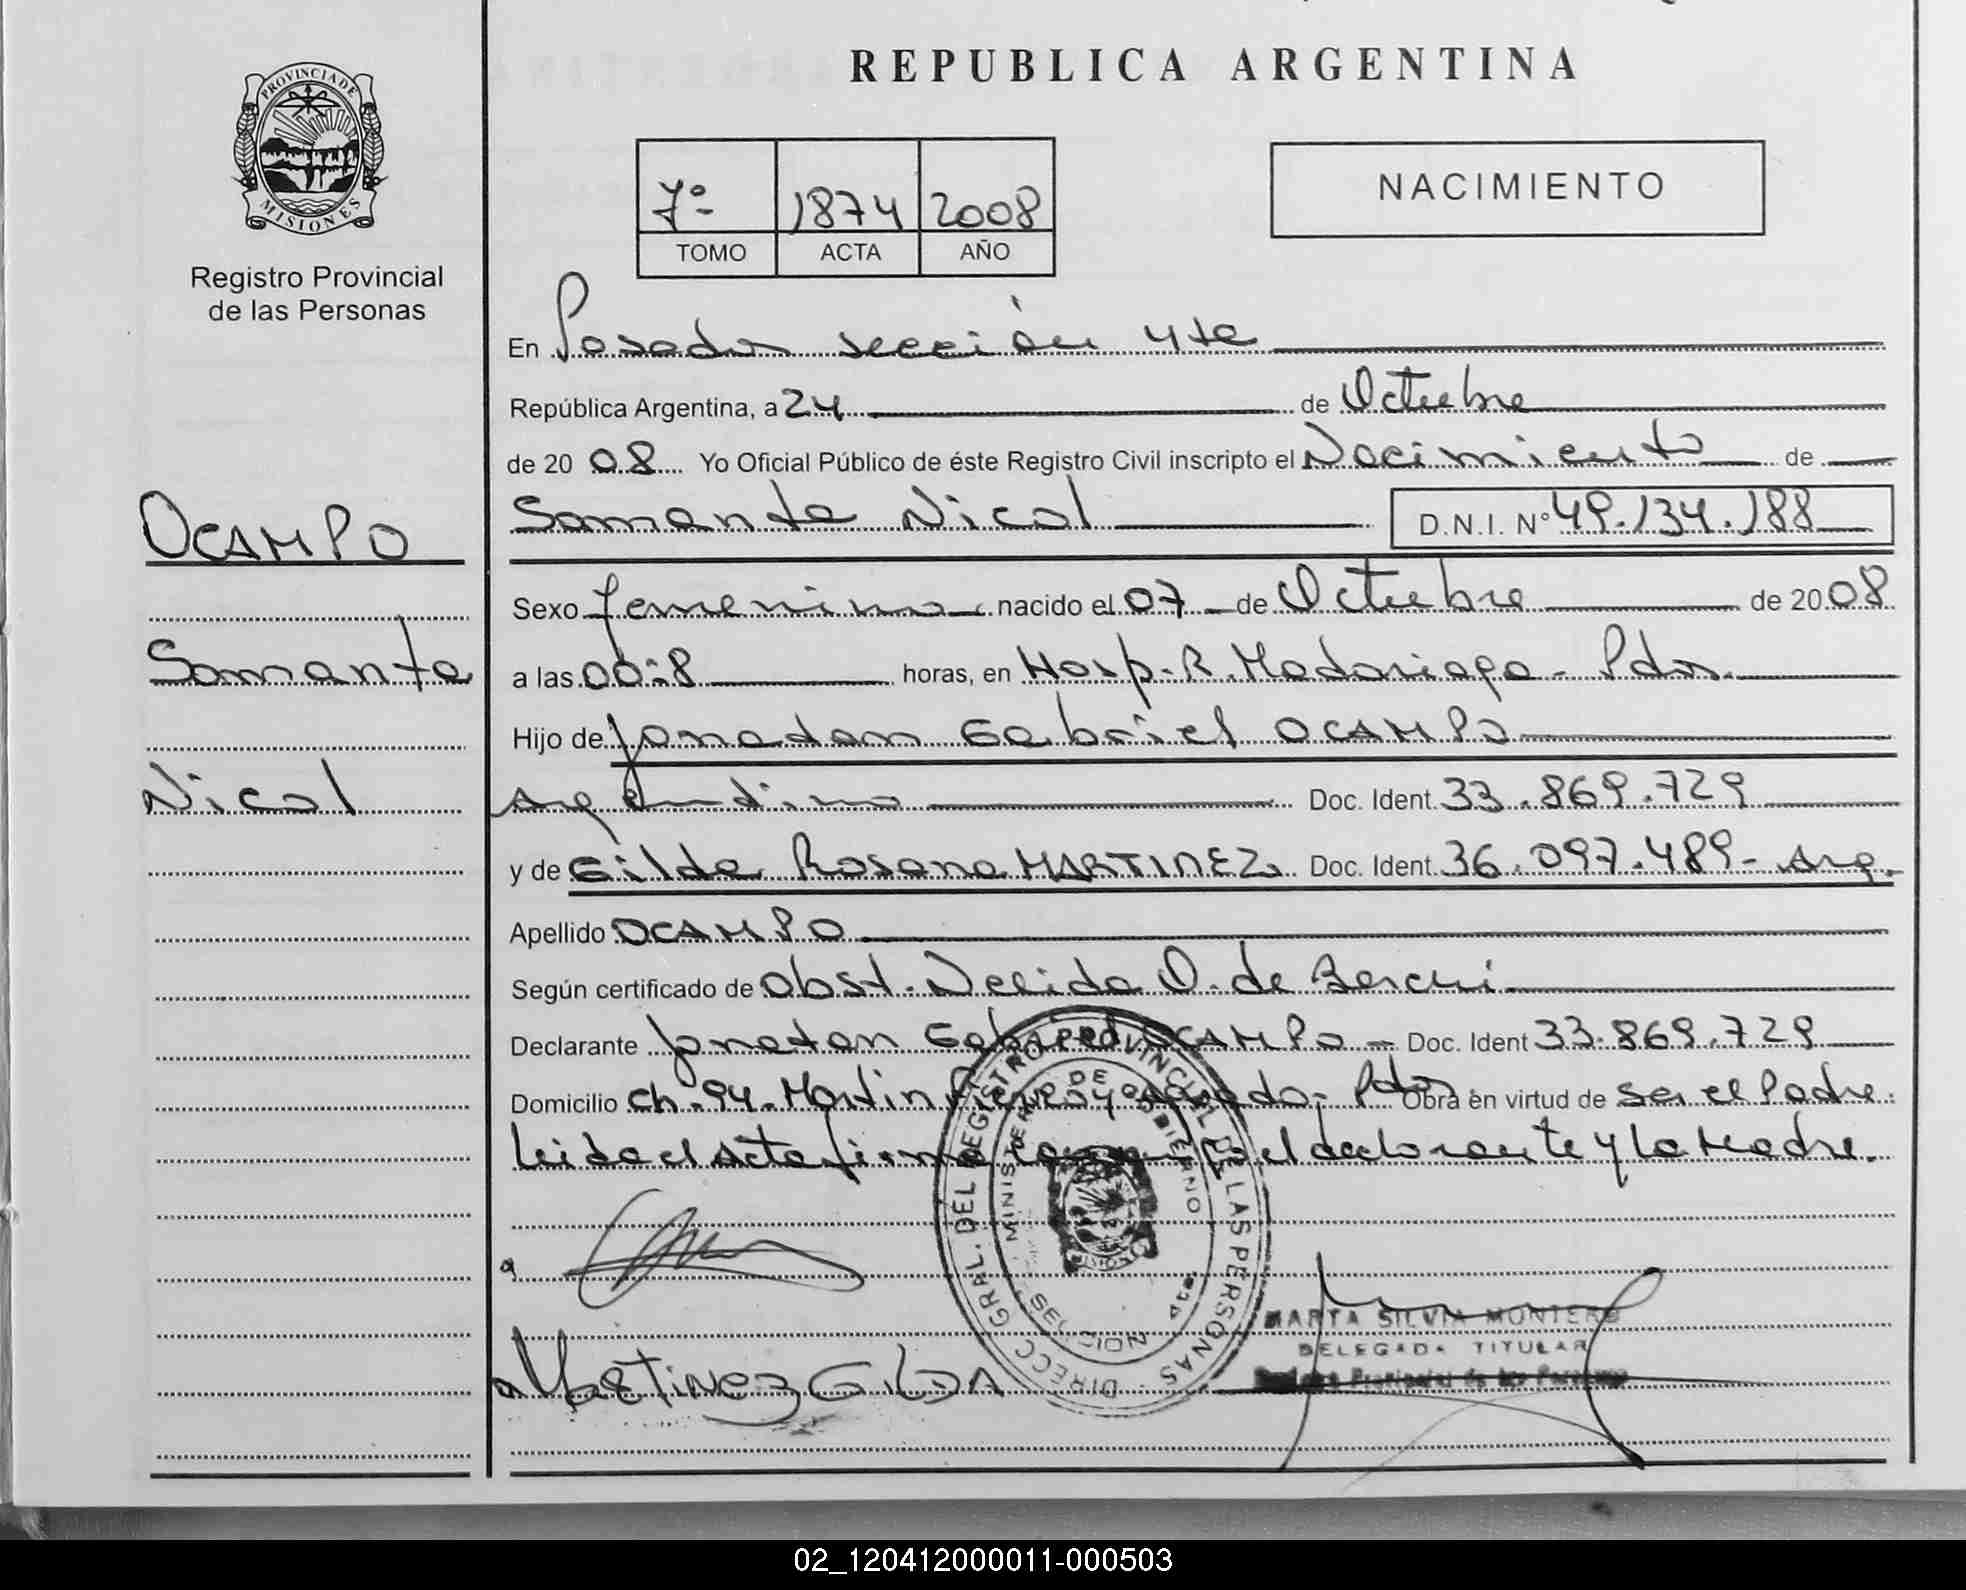 REPUBLICA ARGENTINA
PROVINCIA DE
MISIONES
Registro Provincial
de las Personas
7º 1874 2008
TOMO ACTA AÑO
NACIMIENTO
En Posadas sección 4ta
República Argentina, a 24 de Octubre
de 20 08 Yo Oficial Público de éste Registro Civil inscripto el Nacimiento de
OCAMPO
Samanta Nicol D.N.I. Nº 49.134.188
Sexo femenino nacido el 07 de Octubre de 20 08
Samanta
a las 00:8 horas, en Hosp. R. Madariaga - Pdas.
Hijo de Jonadan Gabriel OCAMPO
Nicol
Argentino Doc. Ident. 33.869.729
y de Gilda Rosana MARTINEZ Doc. Ident. 36.097.489 - Arg.
Apellido OCAMPO
Según certificado de Obst. Nelida O. de
Declarante Jonatan Gabriel OCAMPO - Doc. Ident 33.869.729
Domicilio Ch. 94. Martin Fierro y - Pdas Obra en virtud de ser el Padre.
Leida el Acta firma el declarante y la Madre.
DIRECC. GRAL. DEL REGISTRO PROVINCIAL DE LAS PERSONAS
MINISTERIO DE GOBIERNO
MISIONES
Martinez Gilda
MARTA SILVIA MONTERO
DELEGADA TITULAR
Provincial de las Personas
02_120412000011-000503